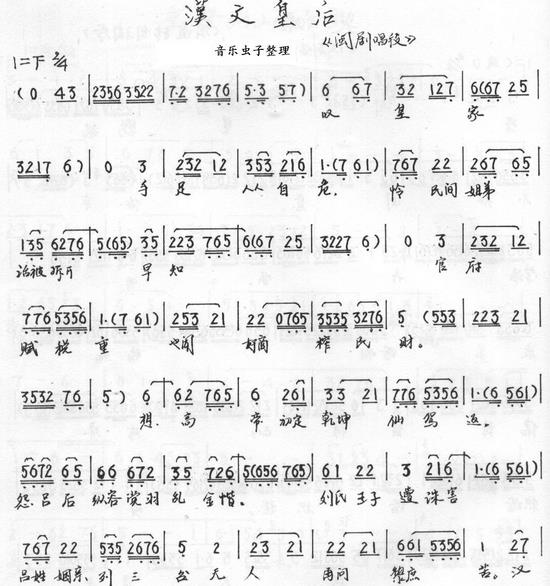 漢文皇后
《闽剧唱段》
音乐虫子整理
1=下 2/4
(0 43 | 2356 3522 | 7·2 3276 | 5·3 57) | 6 67 | 32 127 | 6(67 25
叹 皇 家
3217 6) | 0 3 | 232 12 | 353 216 | 1·(7 61) | 767 22 | 267 65
手 足 人人 自 危. 怜 民间 姐弟
135 6276 | 5(65) 35 | 223 765 | 6(67 25 | 3227 6) | 0 3 | 232 12
活被 拆 早 知 官 府
776 5356 | 1·(7 61) | 253 21 | 22 0765 | 3535 3276 | 5 (553 | 223 21
赋 税 重 榨 民 财.
3532 76 | 5·) 6 | 62 765 | 6 261 | 33 21 | 776 5356 | 1·(6 561)
想 高 帝 初定 乾坤 仙 驾 返.
5672 65 | 66 672 | 35 726 | 5(656 765) | 61 22 | 3 216 | 1·(6 561)
怨 吕 后 纵容 党羽 乱 金 楷. 刘氏 王子 遭 诛害
767 22 | 535 2676 | 5 2 | 23 21 | 22 21 | 661 5356 | 1 27
吕姓 姻亲 列 三 台 无 人 再问 黎庶 苦. 汉